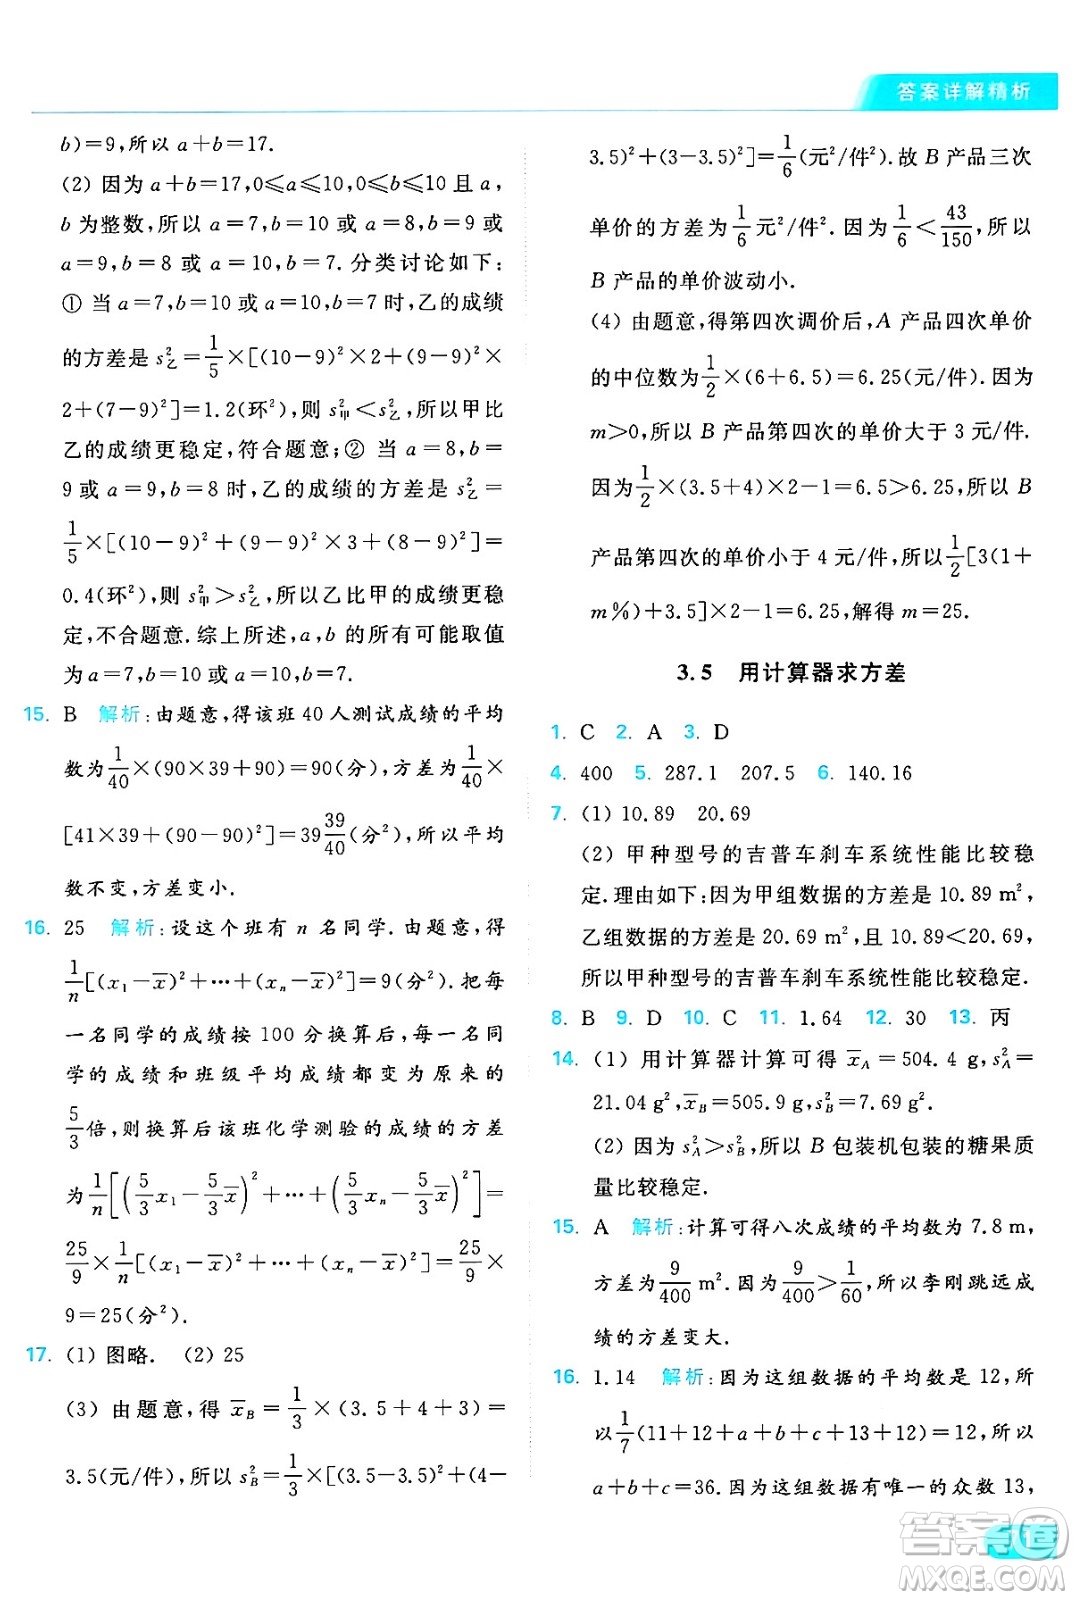 答案详解精析
b)=9,所以 a+b=17.
(2) 因为 a+b=17,0≤a≤10,0≤b≤10 且 a,
b 为整数,所以 a=7,b=10 或 a=8,b=9 或
a=9,b=8 或 a=10,b=7.分类讨论如下:
① 当 a=7,b=10 或 a=10,b=7 时,乙的成绩
的方差是 s²乙=1/5×[(10-9)²×2+(9-9)²×
2+(7-9)²]=1.2(环²),则 s²甲<s²乙,所以甲比
乙的成绩更稳定,符合题意;② 当 a=8,b=
9 或 a=9,b=8 时,乙的成绩的方差是 s²乙=
1/5×[(10-9)²+(9-9)²×3+(8-9)²]=
0.4(环²),则 s²甲>s²乙,所以乙比甲的成绩更稳
定,不合题意.综上所述,a,b 的所有可能取值
为 a=7,b=10 或 a=10,b=7.
15. B 解析:由题意,得该班 40 人测试成绩的平均
数为 1/40×(90×39+90)=90(分),方差为 1/40×
[41×39+(90-90)²]=39 39/40(分²),所以平均
数不变,方差变小.
16. 25 解析:设这个班有 n 名同学.由题意,得
1/n[(x₁-x̄)²+…+(xₙ-x̄)²]=9(分²).把每
一名同学的成绩按 100 分换算后,每一名同
学的成绩和班级平均成绩都变为原来的
5/3倍,则换算后该班化学测验的成绩的方差
为 1/n[(5/3x₁-5/3x̄)²+…+(5/3xₙ-5/3x̄)²]=
25/9×1/n[(x₁-x̄)²+…+(xₙ-x̄)²]=25/9×
9=25(分²).
17. (1) 图略. (2) 25
(3) 由题意,得 x̄B=1/3×(3.5+4+3)=
3.5(元/件),所以 s²B=1/3×[(3.5-3.5)²+(4-
3.5)²+(3-3.5)²]=1/6(元²/件²).故 B 产品三次
单价的方差为 1/6 元²/件².因为 1/6<43/150,所以
B 产品的单价波动小.
(4) 由题意,得第四次调价后,A 产品四次单价
的中位数为 1/2×(6+6.5)=6.25(元/件).因为
m>0,所以 B 产品第四次的单价大于 3 元/件.
因为 1/2×(3.5+4)×2-1=6.5>6.25,所以 B
产品第四次的单价小于 4 元/件,所以 1/2[3(1+
m%)+3.5]×2-1=6.25,解得 m=25.
3.5 用计算器求方差
1. C 2. A 3. D
4. 400 5. 287.1 207.5 6. 140.16
7. (1) 10.89 20.69
(2) 甲种型号的吉普车刹车系统性能比较稳
定.理由如下:因为甲组数据的方差是 10.89 m²,
乙组数据的方差是 20.69 m²,且 10.89<20.69,
所以甲种型号的吉普车刹车系统性能比较稳定.
8. B 9. D 10. C 11. 1.64 12. 30 13. 丙
14. (1) 用计算器计算可得 x̄A=504.4 g,s²A=
21.04 g²,x̄B=505.9 g,s²B=7.69 g².
(2) 因为 s²A>s²B,所以 B 包装机包装的糖果质
量比较稳定.
15. A 解析:计算可得八次成绩的平均数为 7.8 m,
方差为 9/400 m².因为 9/400>1/60,所以李刚跳远成
绩的方差变大.
16. 1.14 解析:因为这组数据的平均数是 12,所
以 1/7(11+12+a+b+c+13+12)=12,所以
a+b+c=36.因为这组数据有唯一的众数 13,
答案圈
MXQE.COM